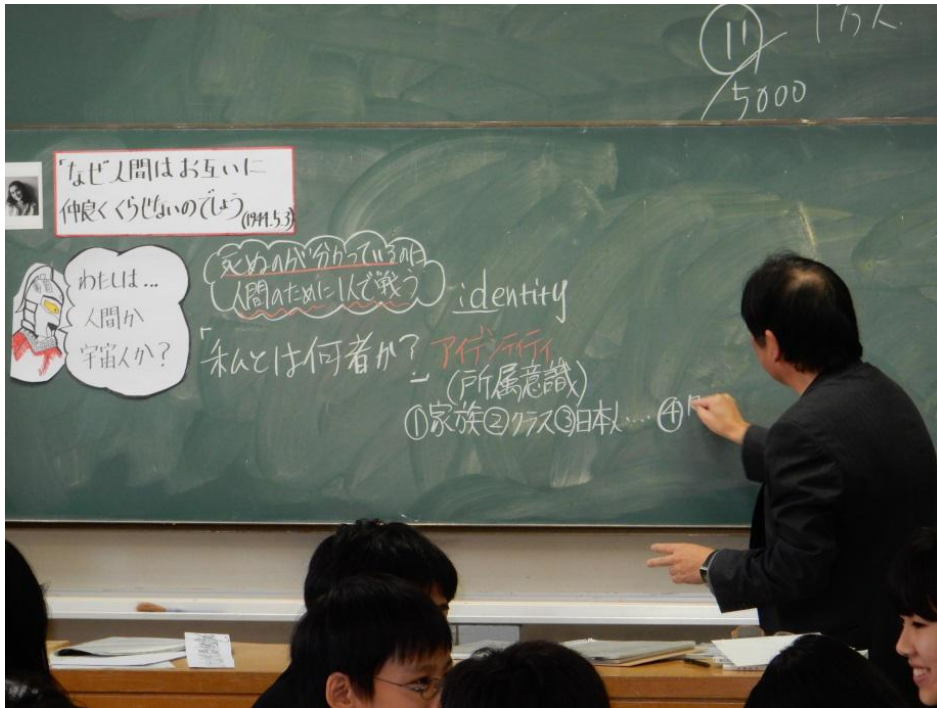 ⑪
5000
1万人.
「なぜ人間はお互いに
仲良くくらせないのでしょう
(1944.5.3)
わたしは…
人間か
宇宙人か?
死ぬのが分かっているのに
人間のために1人で戦う
identity
「私とは何者か?」
アイデンティティ
(所属意識)
①家族②クラス③日本人……④